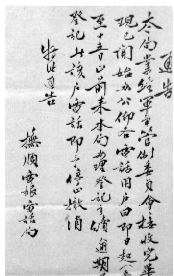 通告
本局業經軍事管制委員會接收完畢
現已開始办公仰各電話用戶由即日起
至十五日以前來本局办理登記手續逾期不
登記者該戶電話即予停止撤消
特此通告
撫順電報電話局